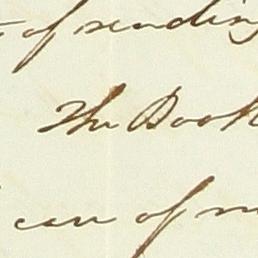 of sending
The Book
can of m